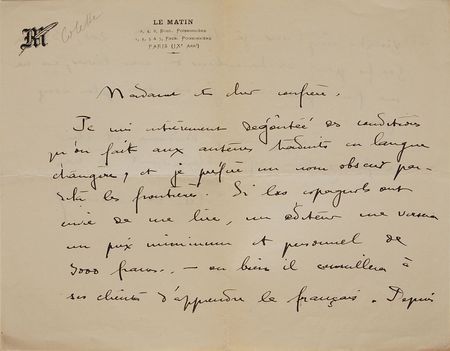 M
Colette
LE MATIN
2, 4, 6, Boul. Poissonnière
1, 3, 5 & 7, Faub. Poissonnière
PARIS (IXe Arrt)
Madame et cher confrère,
Je suis entièrement dégoûtée des conditions
qu'on fait aux auteurs traduits en langue
étrangère, et je préfère un nom obscur par-
delà les frontières. Si les espagnols ont
envie de me lire, un éditeur me versera
un prix minimum et personnel de
3000 francs, — ou bien il conseillera à
ses clients d'apprendre le français. Depuis